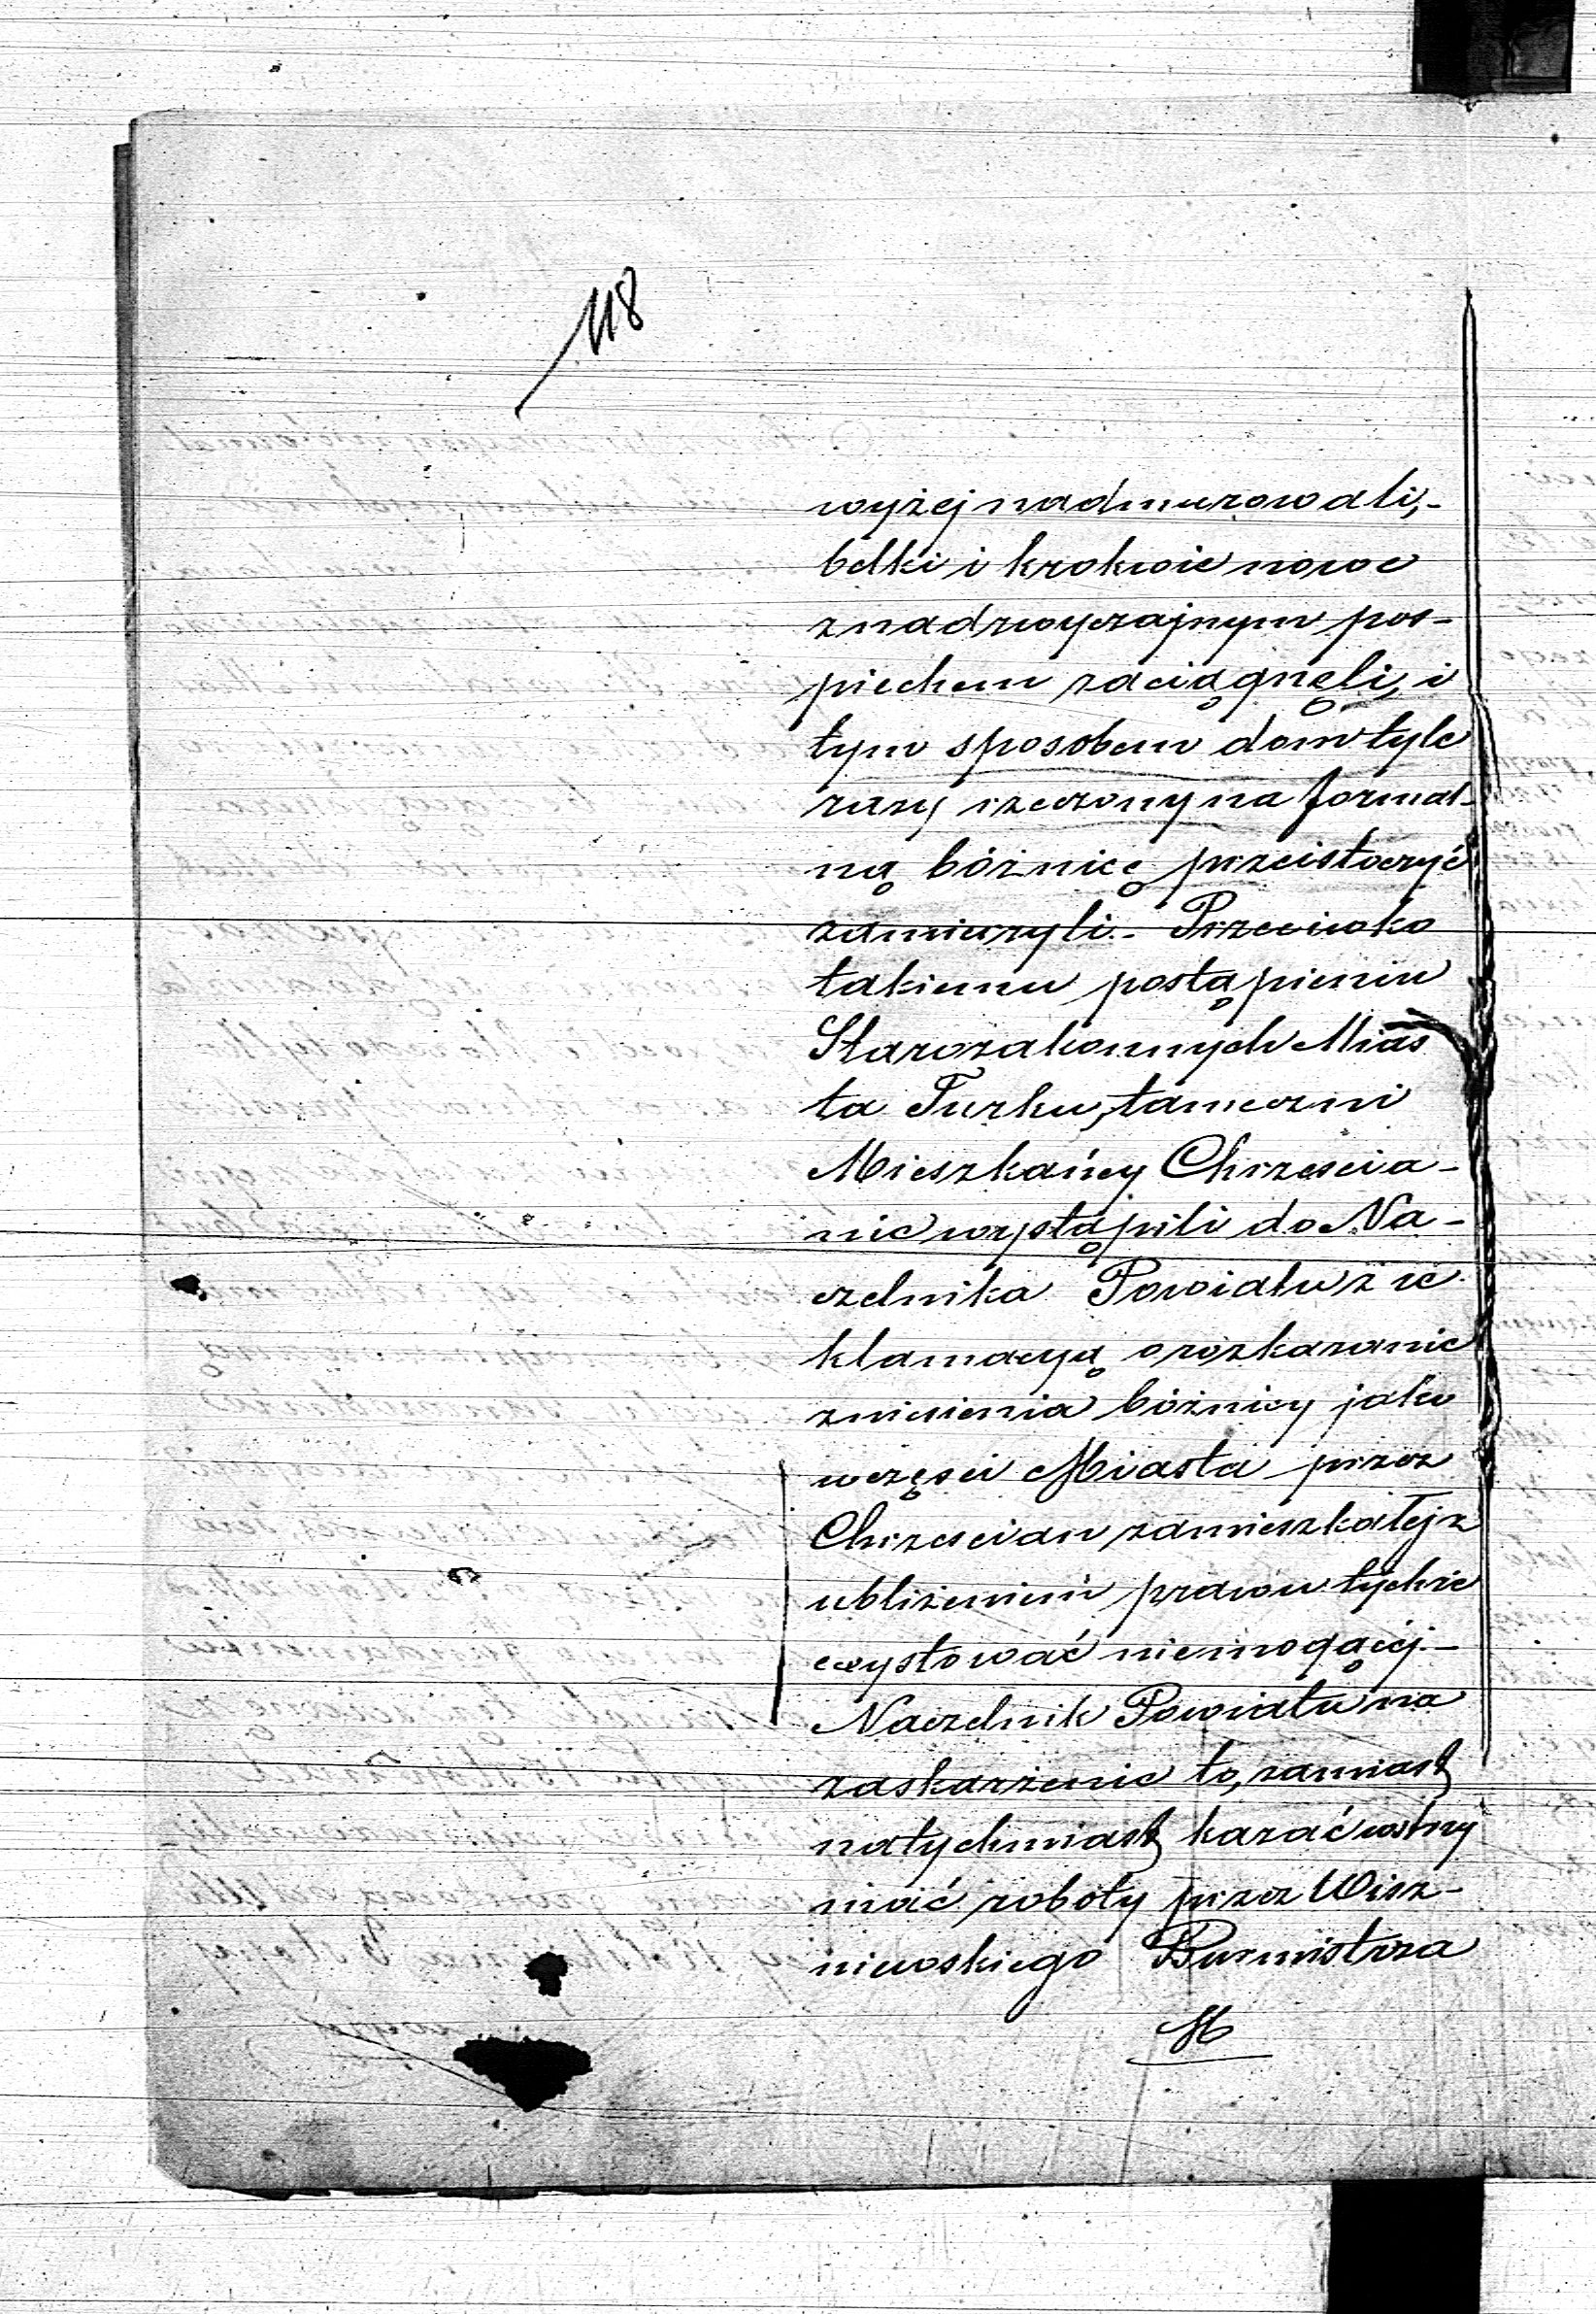 118
wyżej nadmurowali,-
belki i krokwie nowe
z nadzwyczajnym pos-
piechem zaciągnęli, i
tym sposobem dom tyle
razy rzeczony na formal-
ną bóżnicę przeistoczyć
zamierzyli.- Przeciwko
takiemu postąpieniu
Starozakonnych Mias
ta Turku, tameczni
Mieszkańcy Chrzescia-
nie wystąpili do Na-
czelnika Powiatu z re
klamacyą o rozkazanie
zniesienia bóżnicy jako
w częsci Miasta przez
Chrzescian zamieszkałej z
ubliżeniem prawu tychże
exystować niemogącej.-
Naczelnik Powiatu na
zaskarżenie to, zamiast
natychmiast kazać wstrzy
mać roboty przez Wisz-
niewskiego Burmistrza
M